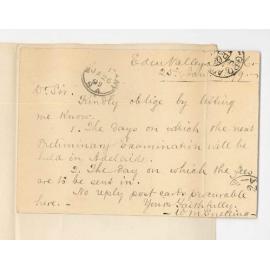 Eden Valley
Dr Sir.
Kindly oblige by letting
me know.
1. The days on which the next
Preliminary Examination will be
held in Adelaide.
2. The day on which the fees
are to be sent in.
No reply post cards procurable
here. —
Yours faithfully.